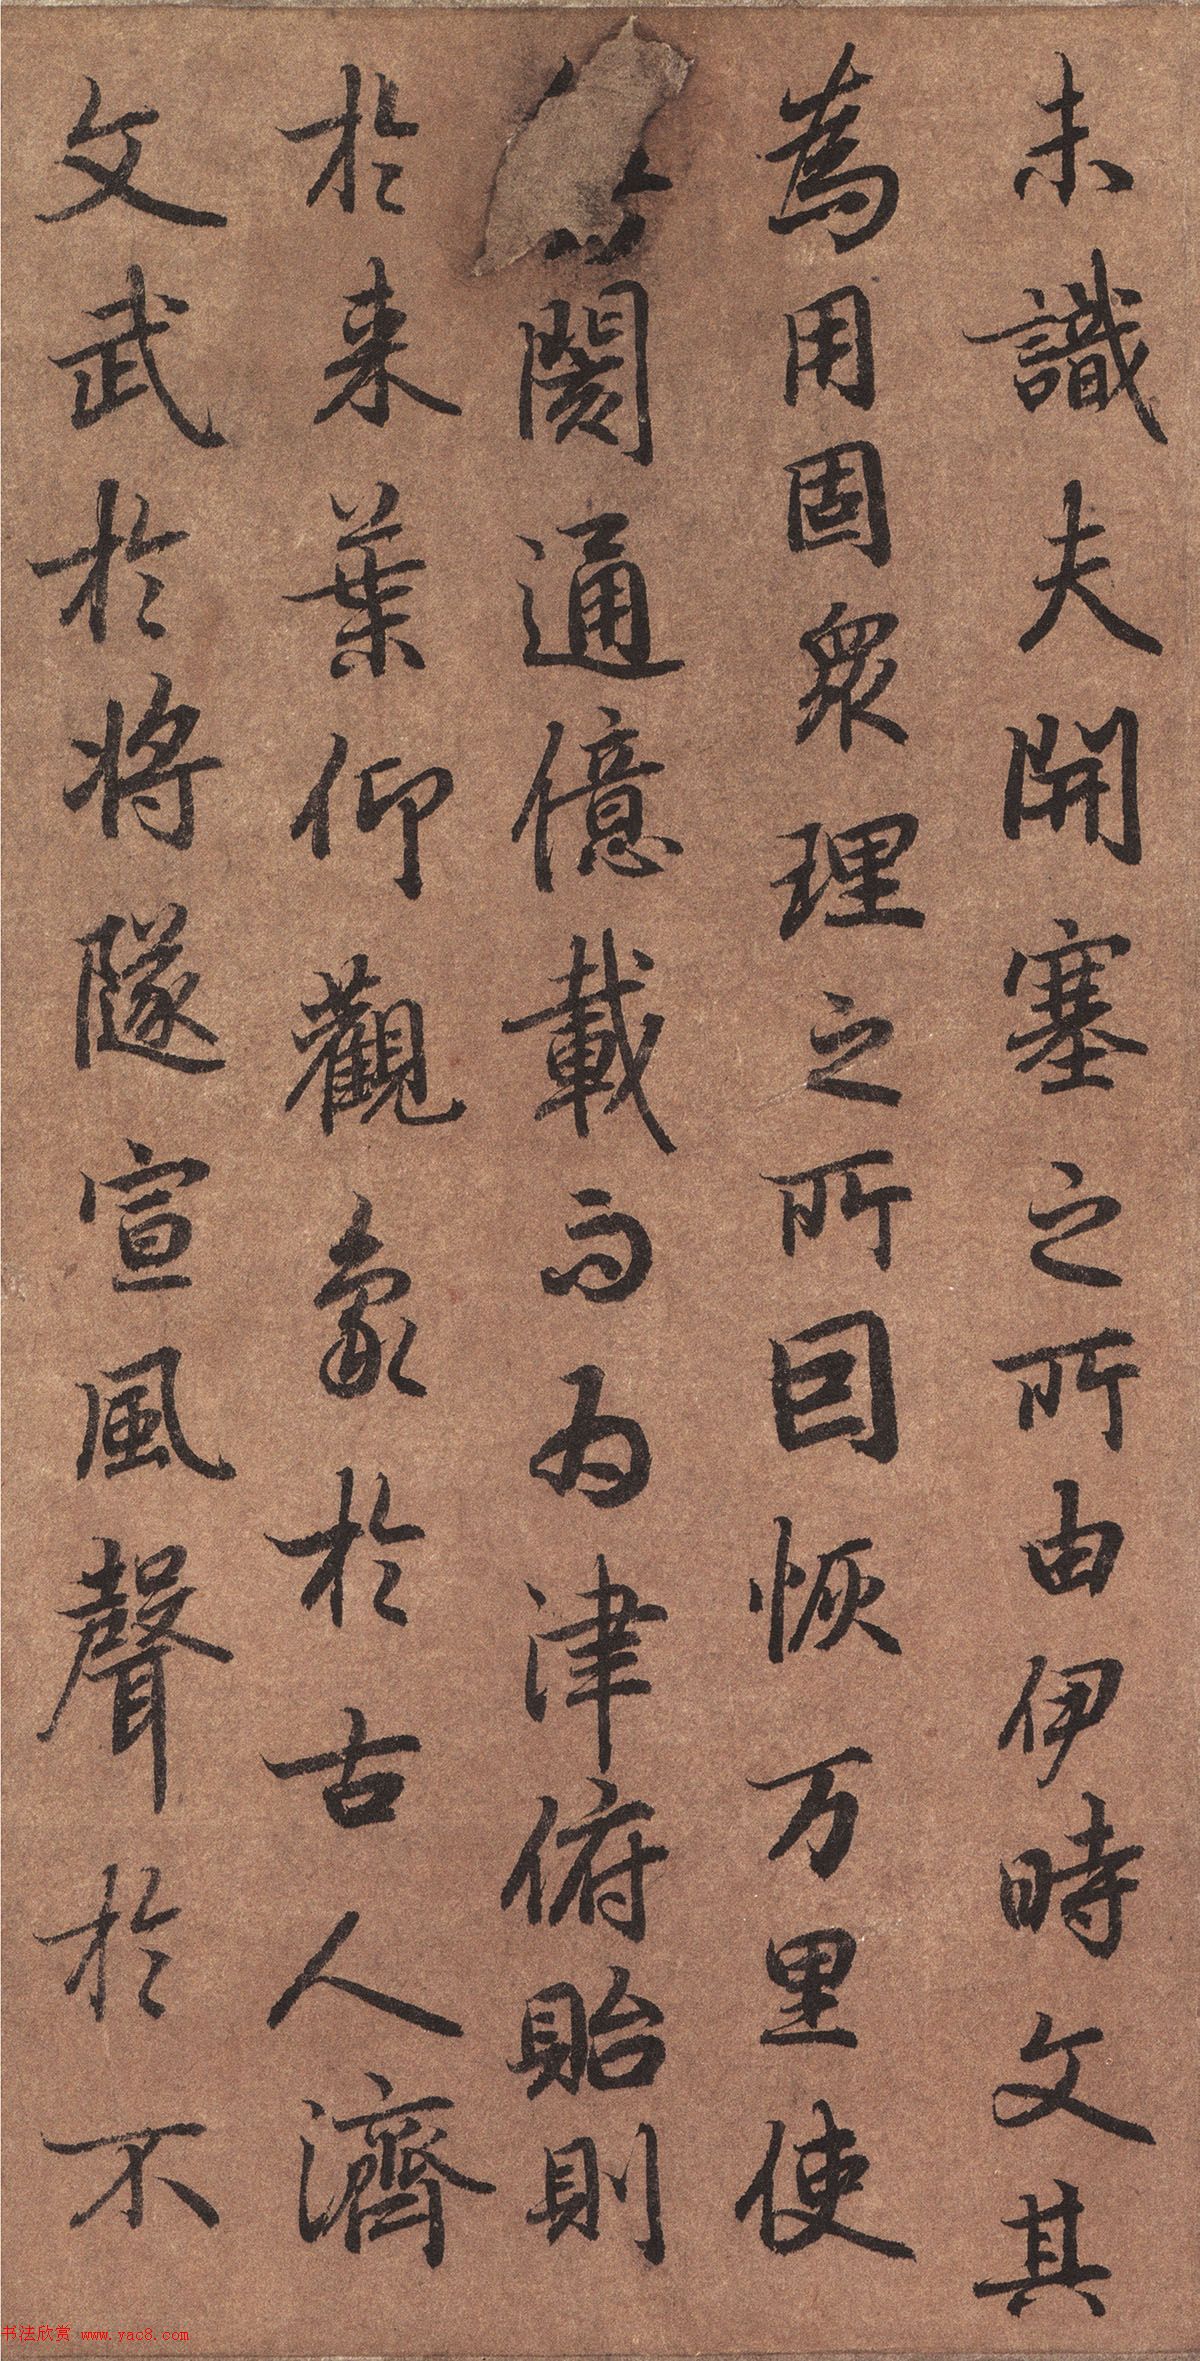 未識夫開塞之所由伊時文其
為用固眾理之所因恢万里使
閡通億載而为津俯貽則
於来葉仰觀象於古人濟
文武於將隧宣風聲於不
书法欣赏 www.yac8.com